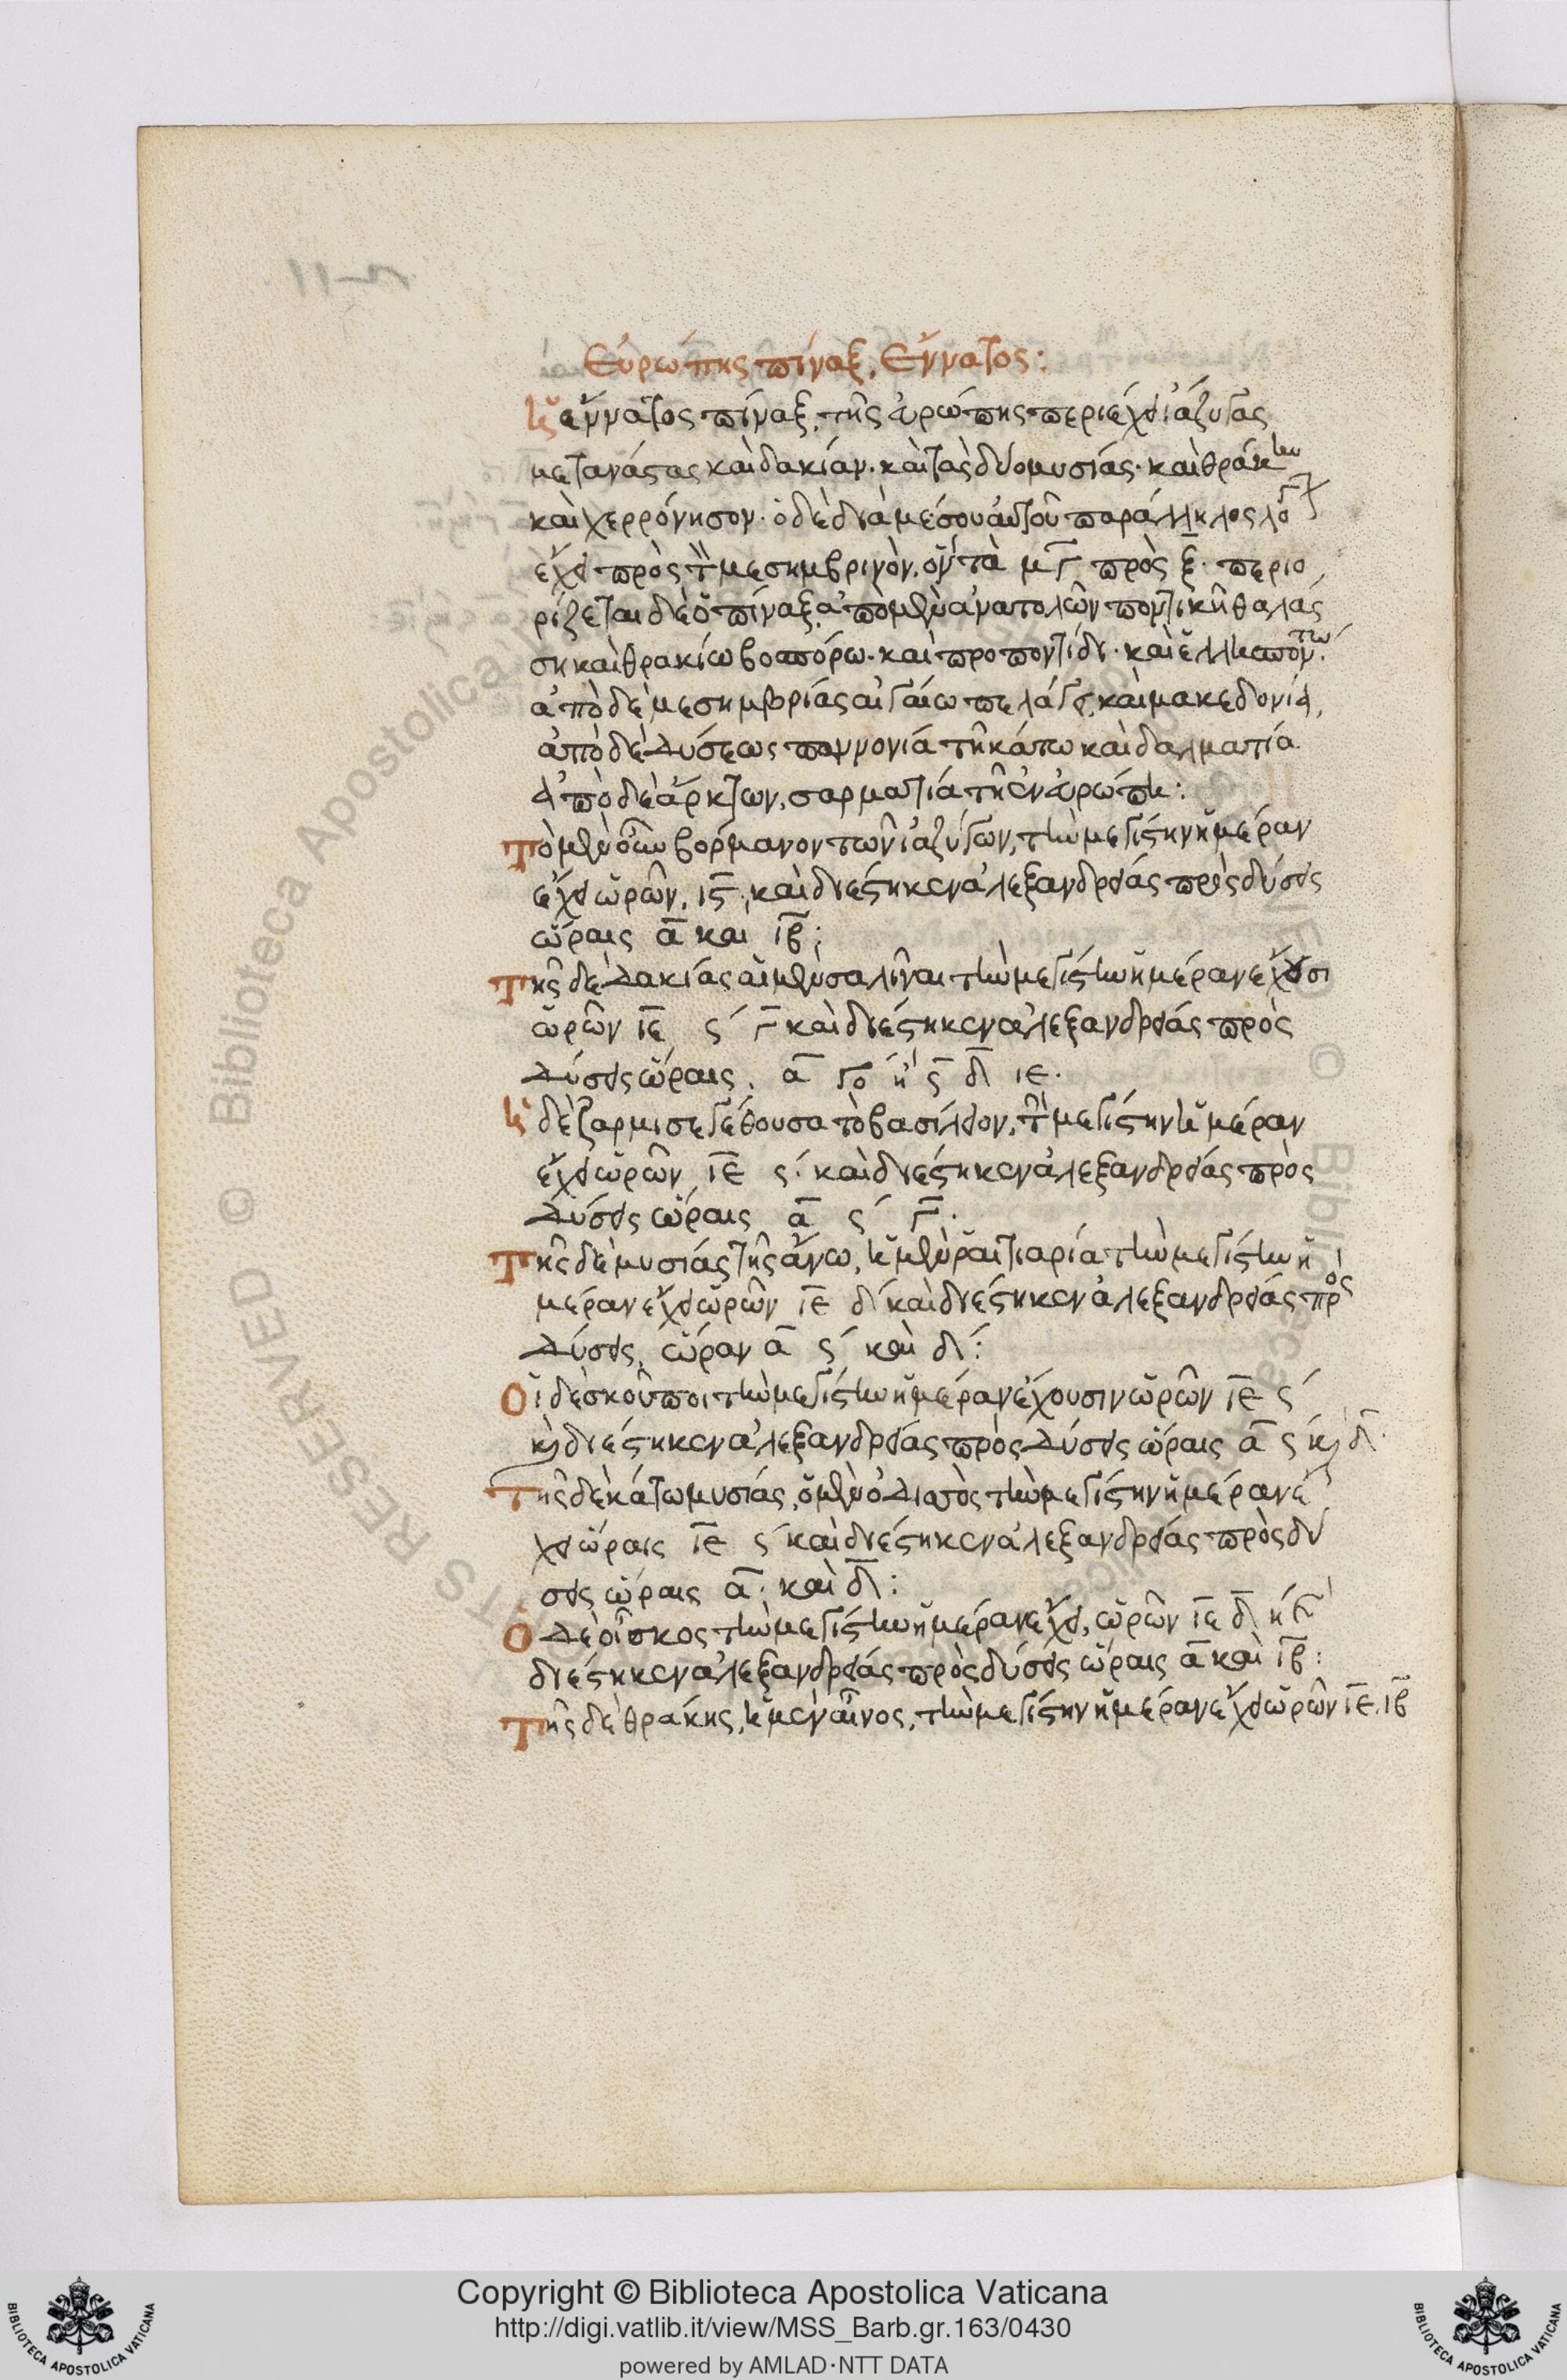 Εὐρώπης πίναξ. ἔννατος:
ὁ ἔννατος πίναξ, τῆς εὐρώπης περιέχει ἰάζυγας
μετανάστας καὶ δακίαν. καὶ τὰς δύο μυσίας. καὶ θράκην
καὶ χερρόνησον. ὁ δὲ διὰ μέσου αὐτοῦ παράλληλος λόγον
ἔχει πρὸς τὸν μεσημβρινὸν, ὃν τὰ μγ πρὸς ξ. περιο
ρίζεται δὲ ὁ πίναξ, ἀπὸ μὲν ἀνατολῶν ποντικῇ θαλάσ
σῃ καὶ θρακίω βοσπόρω. καὶ προποντίδι. καὶ ἑλλησπόντω
ἀπὸ δὲ μεσημβρίας αἰγαίω πελάγει, καὶ μακεδονία,
ἀπὸ δὲ δύσεως παννονία τῇ κάτω καὶ δαλματία
ἀπὸ δὲ ἄρκτων, σαρματία τῇ ἐν εὐρώπῃ:
Τὸ μὲν οὖν βόρμανον τῶν ἰαζύγων, τὴν μεγίστην ἡμέραν
ἔχει ὡρῶν, ις, καὶ διέστηκεν ἀλεξανδρείας πρὸς δύσεις
ὥραις α καὶ ιβ:
Τῆς δὲ δακίας αἱ μὲν σαλῖναι τὴν μεγίστην ἡμέραν ἔχουσι
ὡρῶν ιε ϛ γ καὶ διέστηκεν ἀλεξανδρείας πρὸς
δύσεις ὥραις, α γο κ' ϛ δ ιε.
ἡ δὲ ζαρμισεγέθουσα τὸ βασίλειον, τὴν μεγίστην ἡμέραν
ἔχει ὡρῶν ιε ϛ. καὶ διέστηκεν ἀλεξανδρείας πρὸς
δύσεις ὥραις α ϛ γ.
Τῆς δὲ μυσίας τῆς ἄνω, ἡ μὲν ῥαιτιαρία τὴν μεγίστην ἡ
μέραν ἔχει ὡρῶν ιε δ καὶ διέστηκεν ἀλεξανδρείας πρὸς
δύσεις, ὥραν α ϛ καὶ δ:
Οἱ δὲ σκοῦποι τὴν μεγίστην ἡμέραν ἔχουσιν ὡρῶν ιε ϛ
κ διέστηκεν ἀλεξανδρείας πρὸς δύσεις ὥραις α ϛ κ δ.
Τῆς δὲ κάτω μυσίας, ὁ μὲν ὀδισσὸς τὴν μεγίστην ἡμέραν ἔ
χει ὥραις ιε ϛ καὶ διέστηκεν ἀλεξανδρείας πρὸς δύ
σεις ὥραις α. καὶ δ:
Ὁ δὲ οἶσκος τὴν μεγίστην ἡμέραν ἔχει, ὡρῶν ιε δ
διέστηκεν ἀλεξανδρείας πρὸς δύσεις ὥραις α καὶ ιβ:
Τῆς δὲ θράκης, ἡ μὲν αἶνος, τὴν μεγίστην ἡμέραν ἔχει ὡρῶν ιε. ιβ
© Biblioteca Apostolica Vaticana
RIGHTS RESERVED
Copyright © Biblioteca Apostolica Vaticana
http://digi.vatlib.it/view/MSS_Barb.gr.163/0430
powered by AMLAD·NTT DATA
BIBLIOTECA APOSTOLICA VATICANA
BIBLIOTECA APOSTOLICA VATICANA